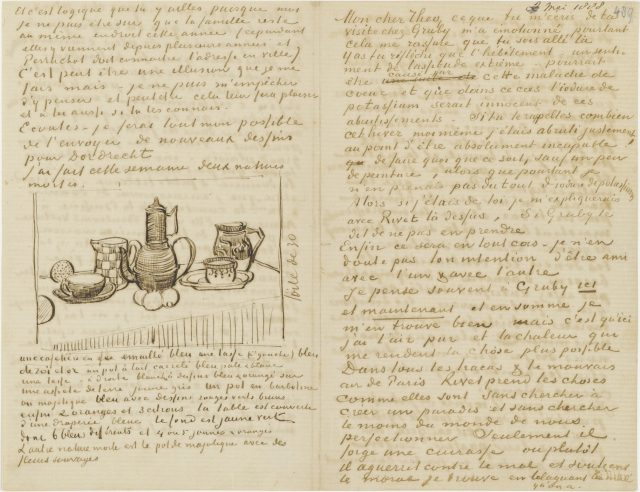 Et c'est logique que tu y ailles puisque moi
je ne puis et je sais que la famille reste
au même endroit cette année (cependant
elles y viennent depuis plusieures années et
Perruchot doit connaitre l'adresse en ville)
C'est peut etre une illusion que je me
fais mais – je ne puis m'empêcher
d'y penser et peutetre cela leur fera plaisir
et à toi aussi si tu les connais.
Ecoutes – je ferai tout mon possible
de t'envoyer de nouveaux dessins
pour Dordrecht
J'ai fait cette semaine deux natures
mortes.
toile de 30
une cafetière en fer émaillé bleu une tasse (à gauche) bleu
de roi et or un pot à lait carrelé bleu pale et blanc
une tasse – à droite blanche à dessins bleus & orangé sur
une assiette de terre jaune gris un pot en barbotine
ou majolique bleu avec dessins rouges verts bruns
enfin 2 oranges et 3 citrons la table est couverte
d'une draperie bleue le fond est jaune vert
donc 6 bleus différents et 4 ou 5 jaunes & oranges
L'autre nature morte est le pot de majolique avec des
fleurs sauvages
4 Mei 1888
489
Mon cher Theo, ce que tu m'écris de ta
visite chez Gruby m'a emotionné pourtant
cela me rassure que tu sois allé là
Y as tu réflechi que l'hébêtement – un senti-
ment de lassitude extrême – pourrait
être causé par cette maladie de
coeur et que dans ce cas l'iodure de
potassium serait innocent de ces
abrutissements. Si tu te rapelles combien
cet hiver moi meme j'étais abruti justement,
au point d'être absolument incapable
de faire quoi que ce soit, sauf un peu
de peinture, alors que pourtant je
n'en prenais pas du tout d'iodure de potassium
Alors si j'étais de toi je m'expliquerais
avec Rivet là dessus, si Gruby te
dit de ne pas en prendre
Enfin ce sera en tout cas – je n'en
doute pas ton intention d'être ami
avec l'un & avec l'autre
Je pense souvent à Gruby ici
et maintenant et en somme je
m'en trouve bien, mais c'est qu'ici
j'ai l'air pur et la chaleur qui
me rendent la chose plus possible
Dans tous les tracas & le mauvais
air de Paris Rivet prend les choses
comme elles sont sans chercher à
créer un paradis et sans chercher
le moins du monde de nous
perfectionner Seulement il
forge une cuirasse ou plutôt
il aguerrit contre le mal et soutient
le moral je trouve en blaguant le mal
qu'on a.